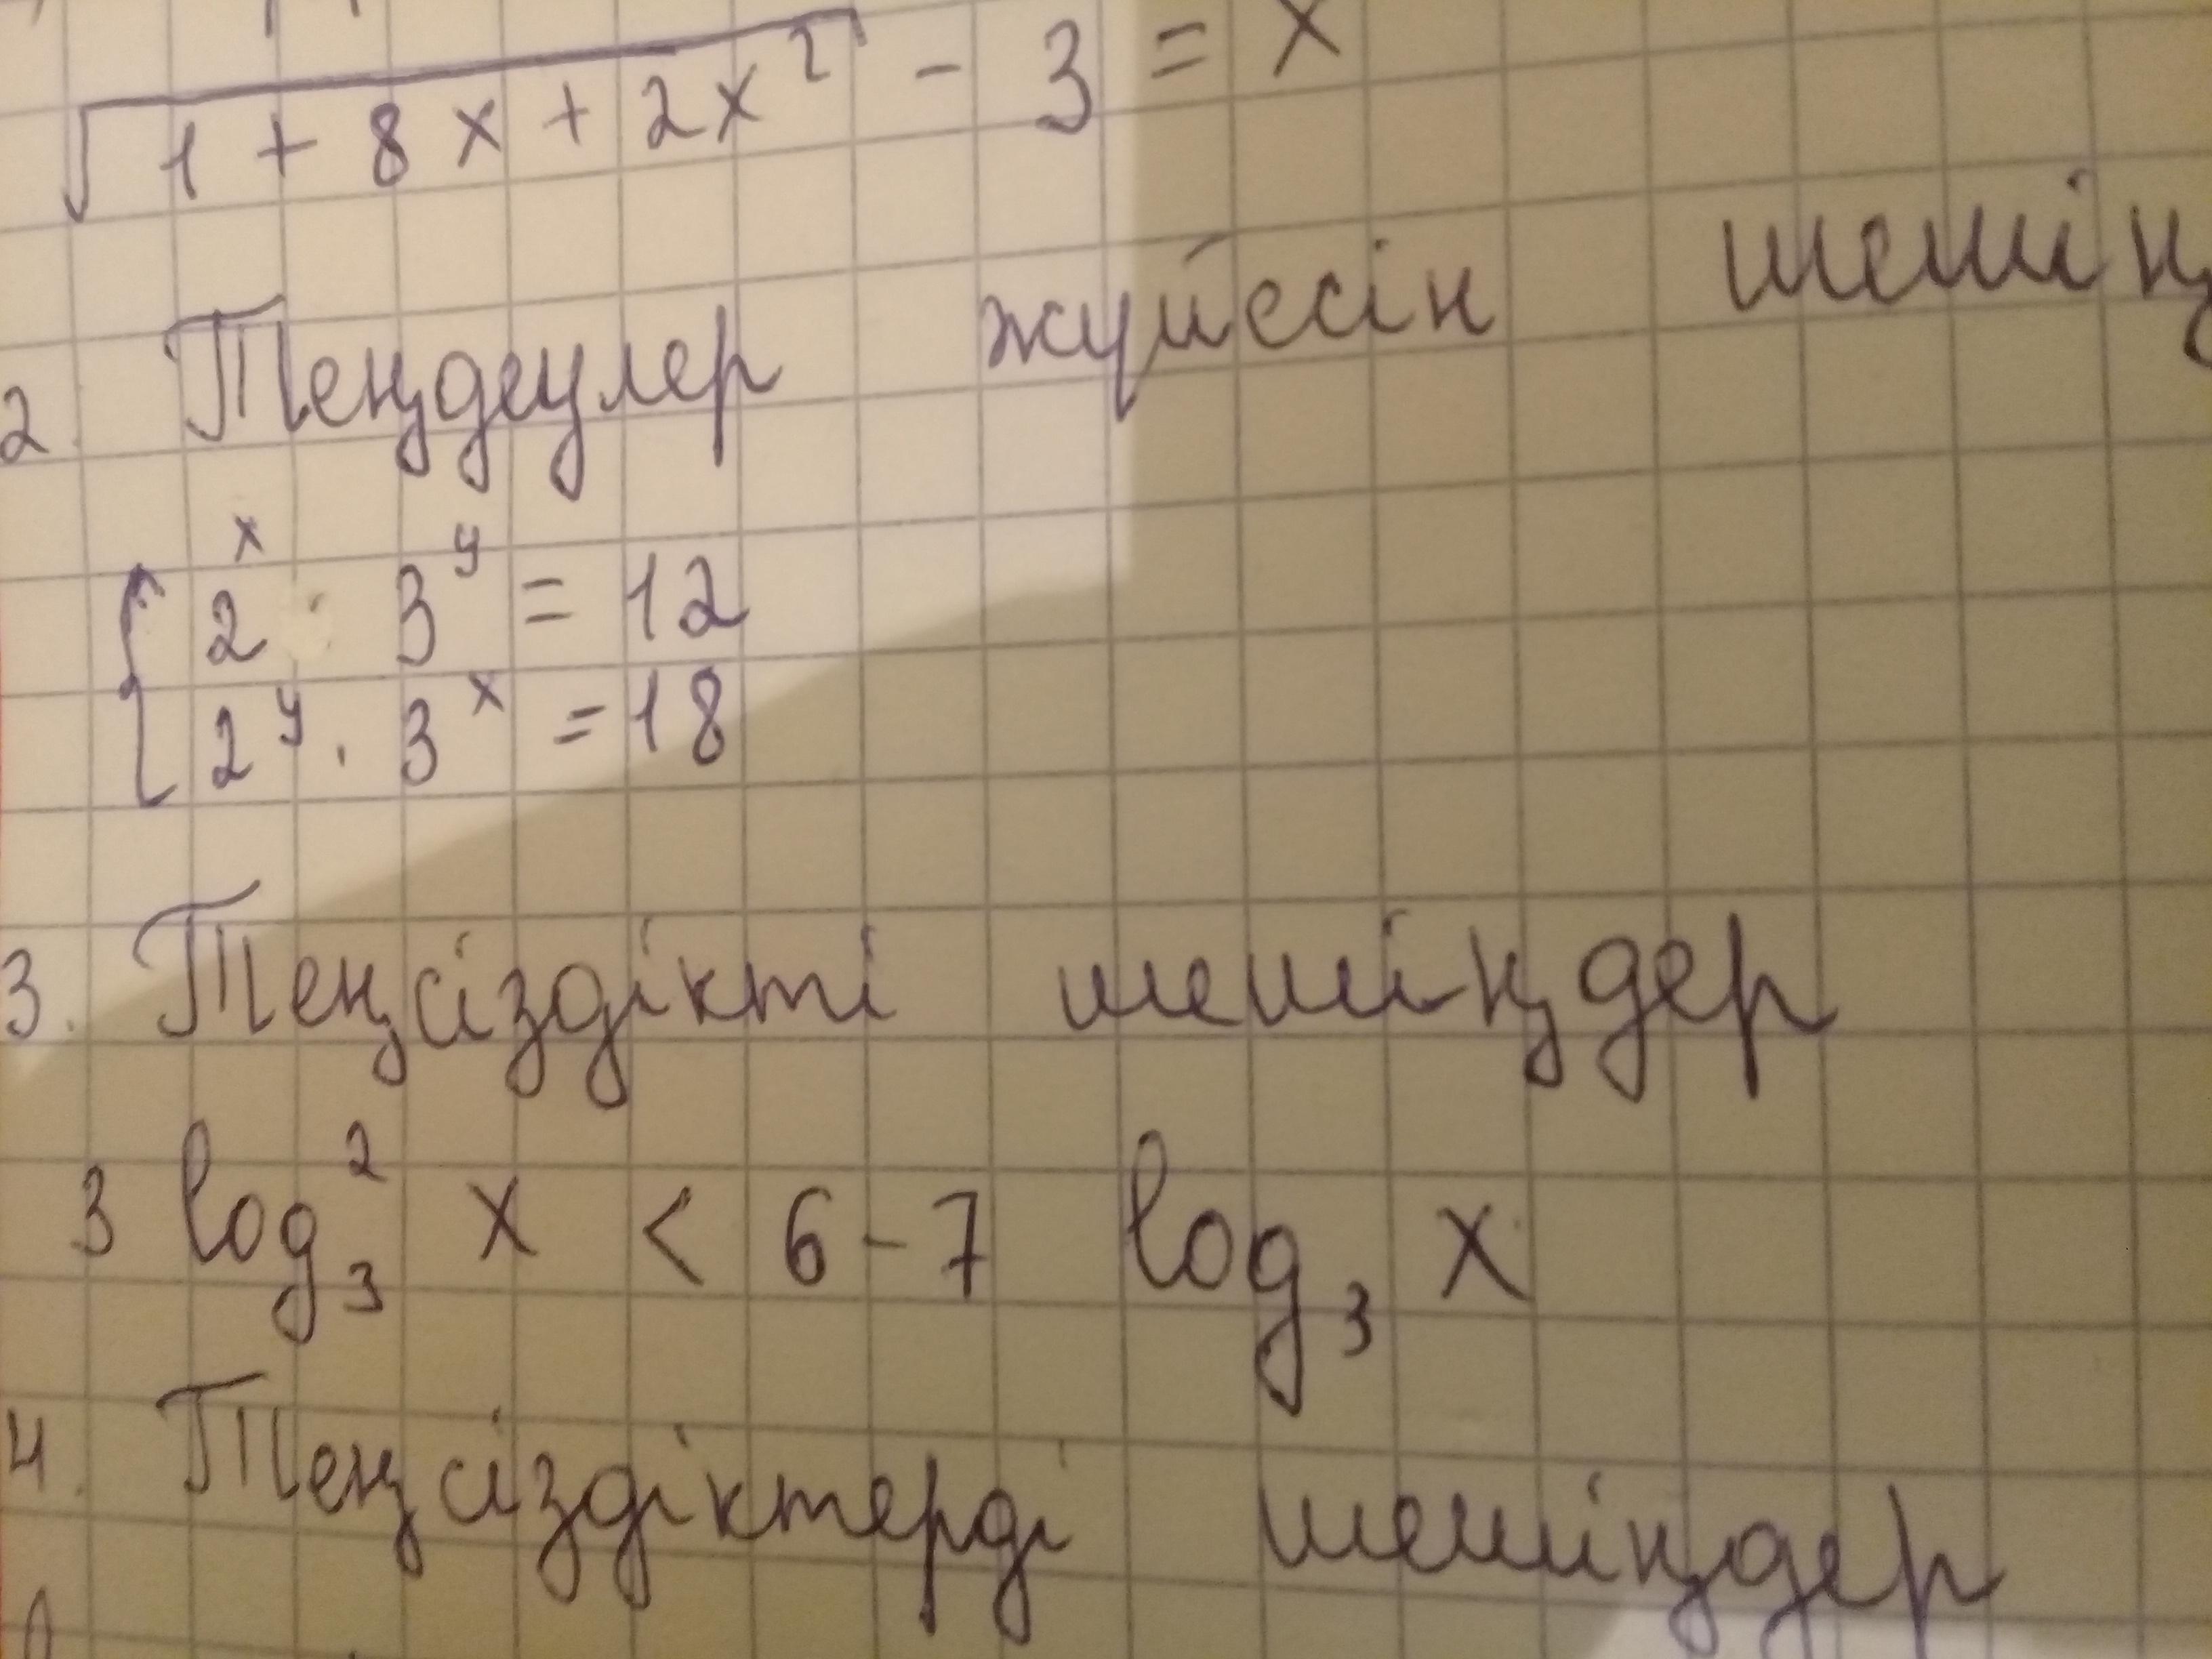 √1 + 8x + 2x² - 3 = x
2. Теңдеулер жүйесін шешің
{ 2ˣ · 3ʸ = 12
2ʸ · 3ˣ = 18
3. Теңсіздікті шешіңдер
3 log₃² x < 6 - 7 log₃ x
4. Теңсіздіктерді шешіңдер